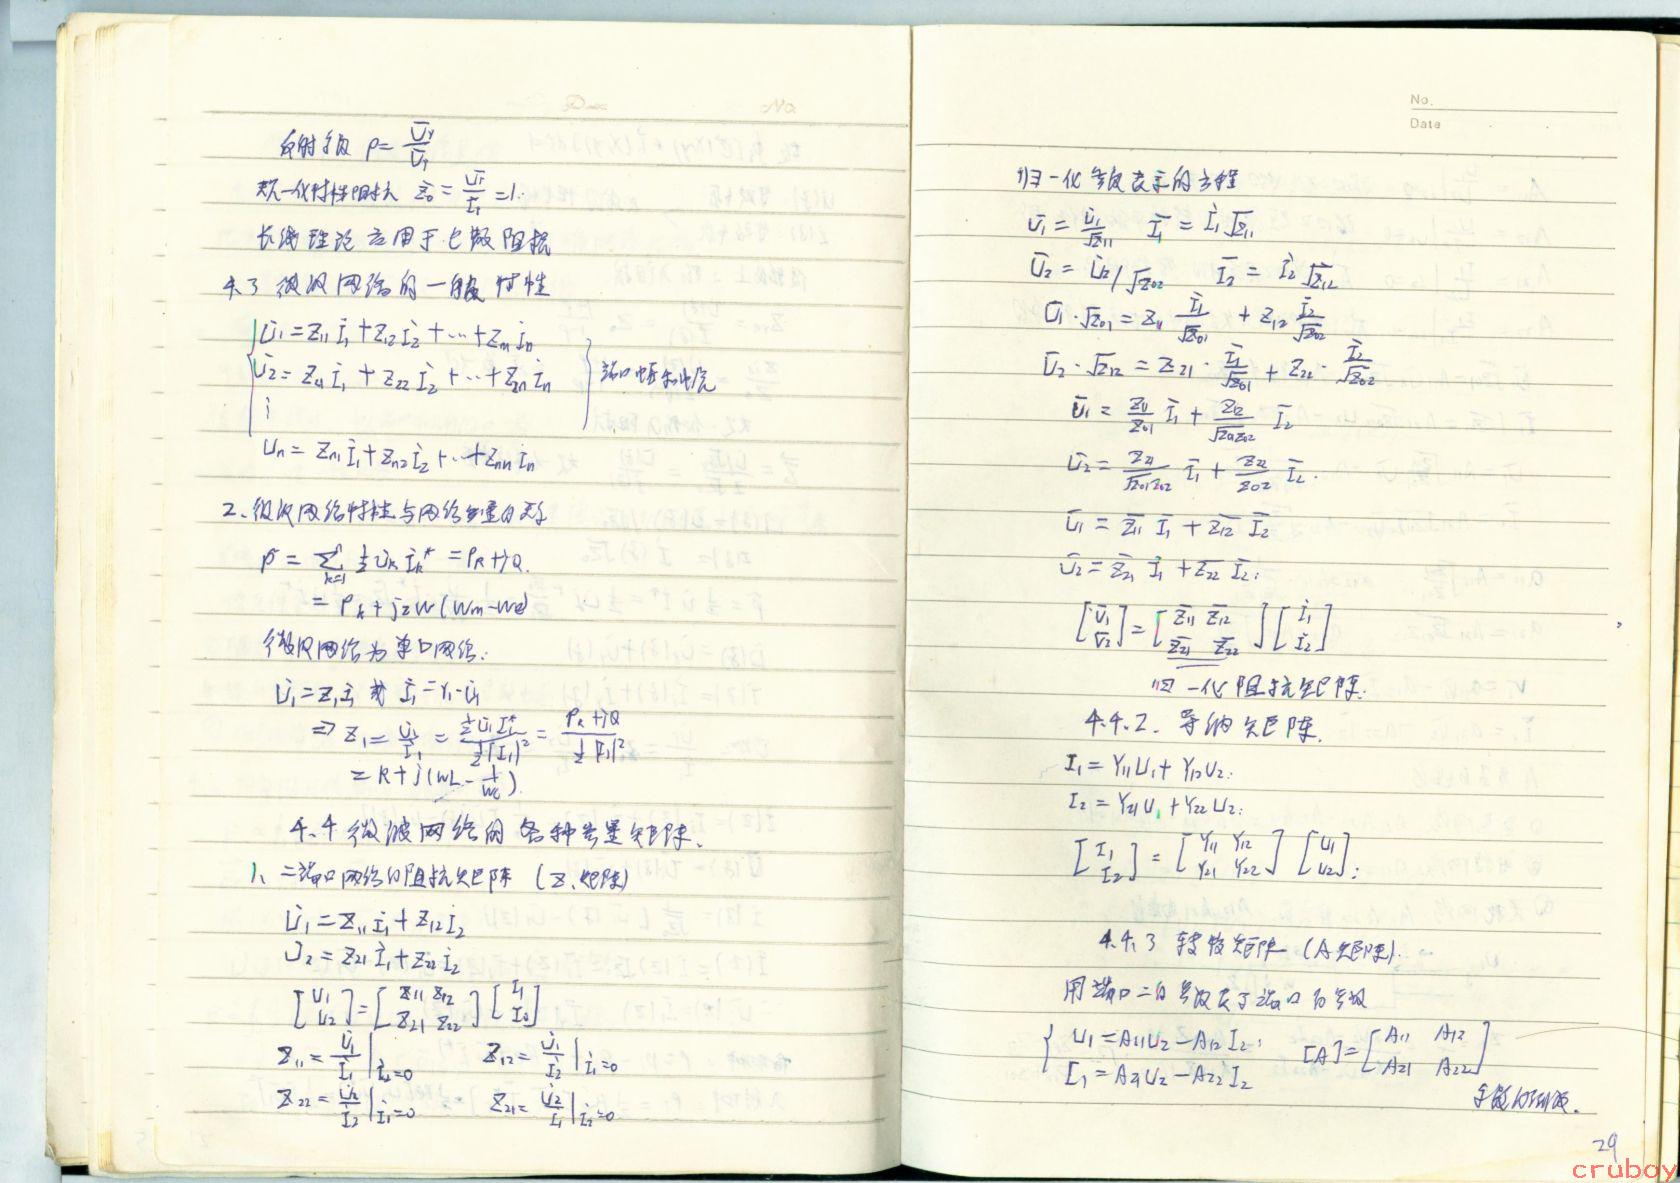 反射参数 ρ = Ūr/Ūi
归一化特性阻抗 Z̄₀ = Ūi/Īi = 1.
长线理论应用于 阻抗
4.3 微波网络的一般特性
U̇₁ = Z₁₁İ₁ + Z₁₂İ₂ + … + Z₁ₙİₙ
U̇₂ = Z₂₁İ₁ + Z₂₂İ₂ + … + Z₂ₙİₙ
⋮
Uₙ = Zₙ₁İ₁ + Zₙ₂İ₂ + … + Zₙₙİₙ
端口电压和电流
2、微波网络特性与网络参量的关系
P = Σ(k=1, n) ½ U̇ₖ İₖ* = P_R + jQ.
= P_R + j2W(Wm − We)
微波网络为单口网络:
U̇₁ = Z₁İ₁ 或 İ₁ = Y₁·U̇₁
⇒ Z₁ = U̇₁/İ₁ = ½U̇₁I₁*/½|I₁|² = (P_R + jQ)/½|I₁|²
= R + j(WL − 1/WC).
4.4 微波网络的各种参量矩阵.
1、二端口网络的阻抗矩阵 (Z、矩阵)
U̇₁ = Z₁₁İ₁ + Z₁₂İ₂
U̇₂ = Z₂₁İ₁ + Z₂₂İ₂
[U₁ U₂] = [Z₁₁ Z₁₂ Z₂₁ Z₂₂] [I₁ I₂]
Z₁₁ = U̇₁/İ₁ |İ₂=0 Z₁₂ = U̇₁/İ₂ |İ₁=0
Z₂₂ = U̇₂/İ₂ |İ₁=0 Z₂₁ = U̇₂/İ₁ |İ₂=0
No.
Date
归一化参数表示的方程
Ū₁ = U̇₁/√Z₁₁ Ī₁ = İ₁√Z₁₁
Ū₂ = U̇₂/√Z₀₂ Ī₂ = İ₂√Z₁₂
Ū₁·√Z₀₁ = Z₁₁ Ī₁/√Z₀₁ + Z₁₂ Ī₂/√Z₀₂
Ū₂·√Z₁₂ = Z₂₁· Ī₁/√Z₀₁ + Z₂₂· Ī₂/√Z₀₂
Ū₁ = Z₁₁/Z₀₁ Ī₁ + Z₁₂/√Z₀₁Z₀₂ Ī₂
Ū₂ = Z₂₁/√Z₀₁Z₀₂ Ī₁ + Z₂₂/Z₀₂ Ī₂.
Ū₁ = Z̄₁₁ Ī₁ + Z̄₁₂ Ī₂
Ū₂ = Z̄₂₁ Ī₁ + Z̄₂₂ Ī₂;
[Ū₁ Ū₂] = [Z̄₁₁ Z̄₁₂ Z̄₂₁ Z̄₂₂] [Ī₁ Ī₂]
归一化阻抗矩阵.
4.4.2. 导纳矩阵.
I₁ = Y₁₁U₁ + Y₁₂U₂;
I₂ = Y₂₁U₁ + Y₂₂U₂;
[I₁ I₂] = [Y₁₁ Y₁₂ Y₂₁ Y₂₂] [U₁ U₂];
4.4.3 转移矩阵 (A矩阵).
用端口二的参数表示端口的参数
U₁ = A₁₁U₂ − A₁₂I₂; [A] = [A₁₁ A₁₂ A₂₁ A₂₂]
I₁ = A₂₁U₂ − A₂₂I₂
29
cruboy